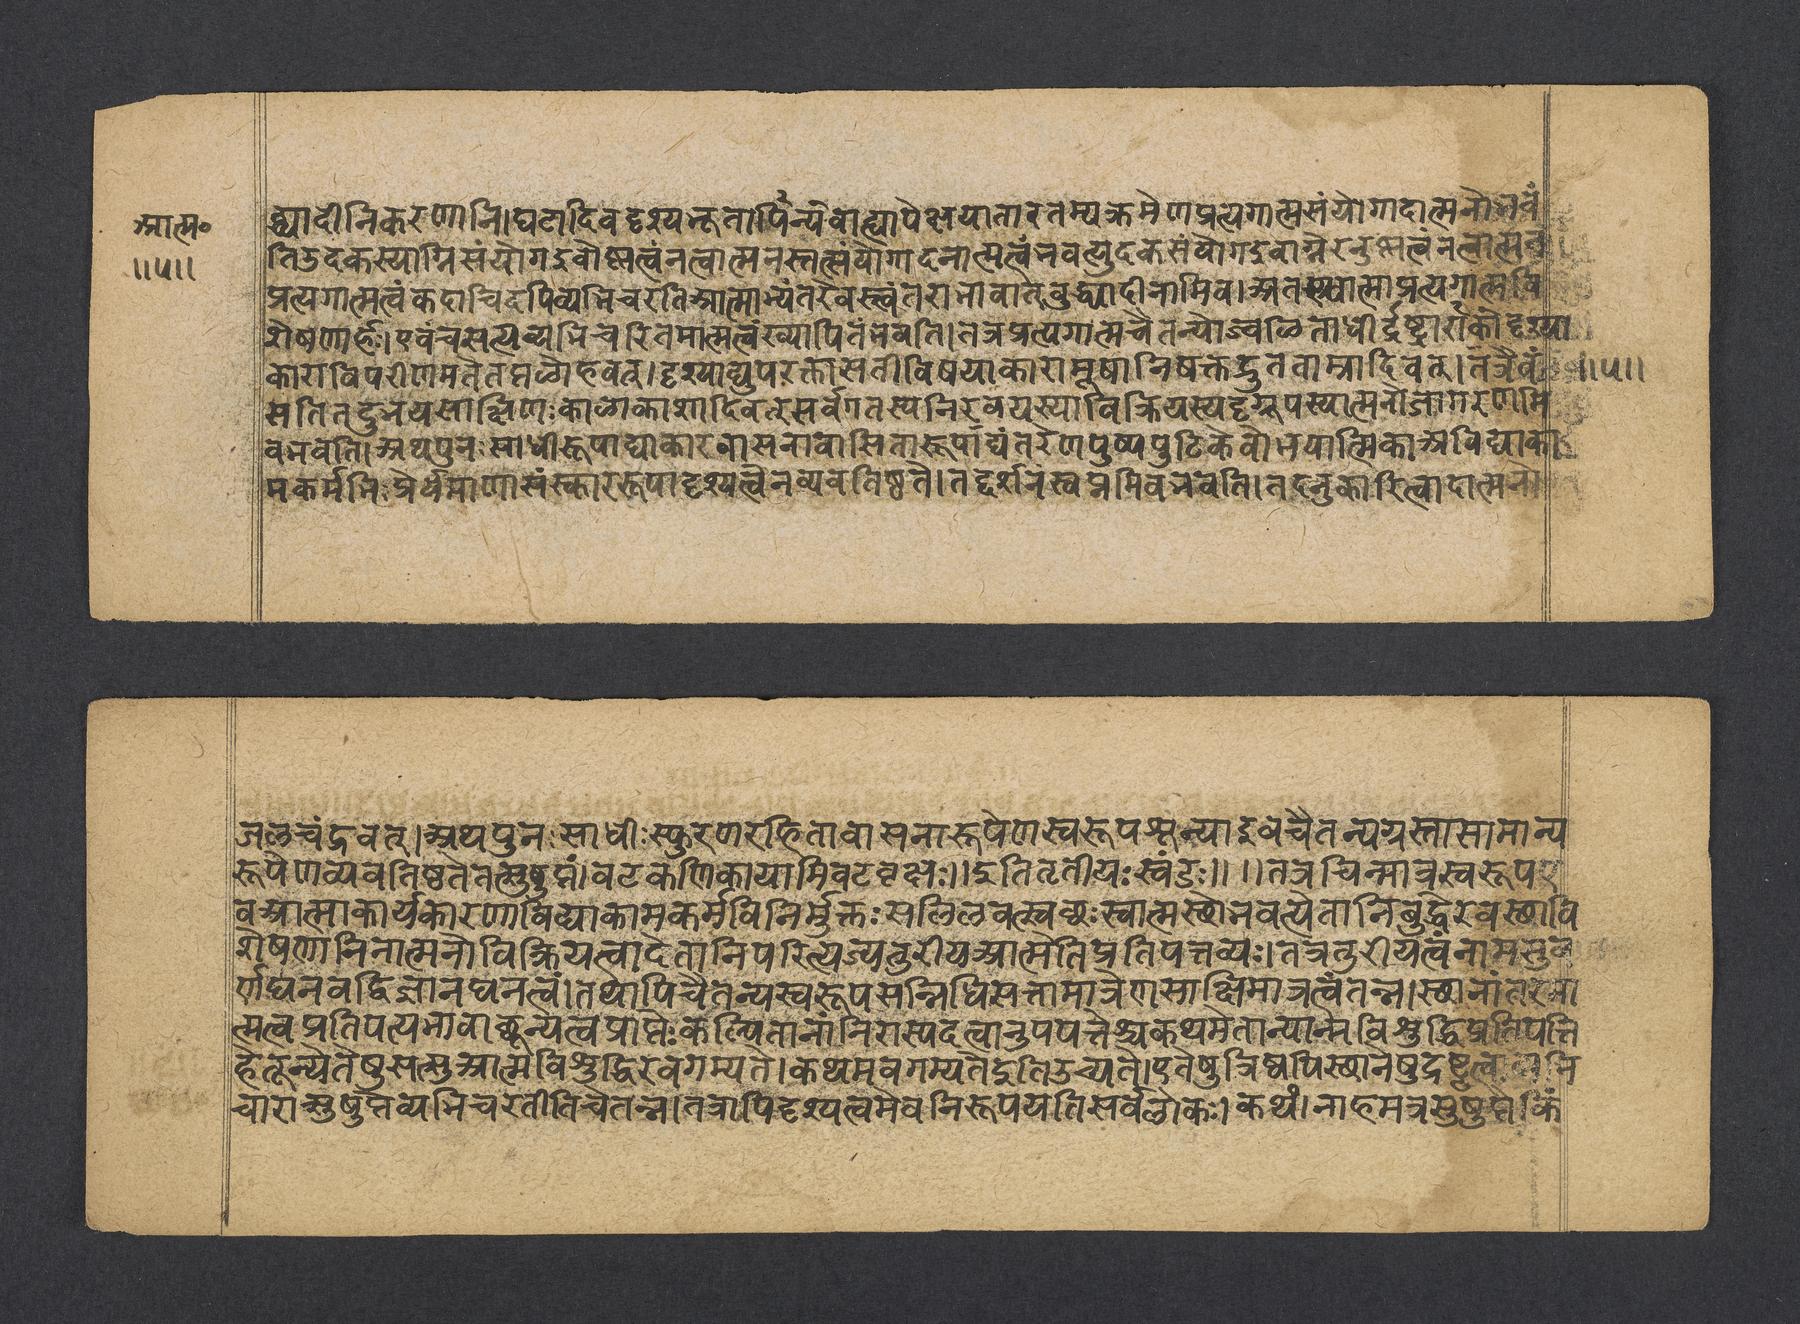 आत्म॰
॥५॥
द्ध्यादीनिकरणानि।घटादिवदृश्यभूतार्पिन्येवाह्यापेक्षयातारतम्यक्रमेणप्रत्यगात्मसंयोगादात्मनोभवं
तिउदकस्याग्निसंयोगइवौष्णत्वंनत्वात्मनस्तत्संयोगादनात्मत्वंभवत्युदकसंयोगइवाग्नेरनुष्णत्वंनत्वात्मनः
प्रत्यगात्मत्वंकदाचिदपिव्यभिचरतिआत्माभ्यंतरवस्त्वंतराभावात्बुद्ध्यादीनामिव।अतस्त्वात्माप्रत्यगात्मवि
शेषणार्हः।एवंचसत्यव्यभिचरितमात्मत्वंख्यापितंभवति।तत्रप्रत्यगात्मचैतन्योज्वळिताधीर्द्रष्ट्राराकौदृश्या
काराविपरीणमतेतप्तळोहवत्।दृश्याद्युपरक्तासतीविषयाकारामूषानिषक्तद्रुतताम्रादिवत्।तत्रैवं
॥५॥
सतितदुभयसाक्षिणःकाळाकाशादिवत्सर्वगतस्यनिरवयस्याविक्रियस्यदृग्रूपस्यात्मनोजागरणमि
वभवति।अथपुनःसाधीरूपाद्याकारवासनावासितारूपाद्यंतरेणपुष्पपुटिकेवोभयात्मिकाअविद्याका
मकर्मभिःप्रेर्यमाणासंस्काररूपादृश्यत्वेनव्यवतिष्ठते।तद्दर्शनंस्वप्नमिवभवति।तदनुकारित्वादात्मनो
जलचंद्रवत्।अथपुनःसाधीःस्फुरणरहितावासनारूपेणस्वरूपशून्याइवचैतन्यग्रस्तासामान्य
रूपेणव्यवतिष्ठतेतत्सुषुप्तं।वटकणिकायामिवटवृक्षः॥इतितृतीयःस्वंडः॥ ॥तत्रचिन्मात्रस्वरूपए
वआत्माकार्यकारणाविद्याकामकर्मविनिर्मुक्तःसलिलवत्स्वच्छःस्वात्मस्थानवत्येतानिबुद्धेरेवस्थावि
शेषणानिनात्मनोविक्रियत्वादेतानिपरित्यज्यतुरीयआत्मेतिप्रतिपत्तव्यः।तत्रतुरीयत्वंनामसुव
र्णघनवद्विज्ञानघनत्वं।तथापिचैतन्यस्वरूपसन्निधिसत्तामात्रेणसाक्षिमात्रत्वंतन्न।स्थानांतरेआ
त्मत्वप्रतिपत्त्यभावाच्छून्यत्वप्राप्तेःकल्पितानांनिरास्पदत्वानुपपत्तेश्चकथमेतान्यात्मविशुद्धिप्रतिपत्ति
हेतून्येतेषुसत्सुआत्मविशुद्धिरेवगम्यते।कथमवगम्यतेइतिउच्यते।एतेषुत्रिष्वपिस्थानेषुद्रष्टृत्वाव्यभि
चारासुषुप्तेव्यभिचरतीतिचेतन्न।तत्रापिदृश्यत्वमेवनिरूपयतिसर्वेळोकः।कथं।नाहमत्रसुषुप्तेकिं